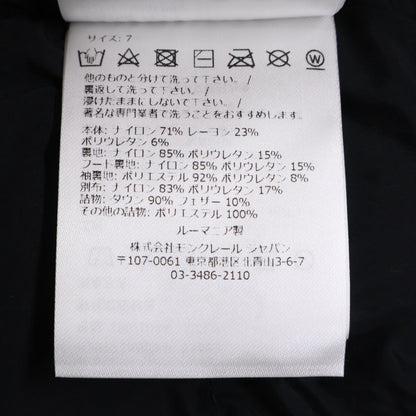 サイズ: 7
他のものと分けて洗って下さい。/
裏返して洗って下さい。/
浸けたままにしないで下さい。/
著名な専門業者で洗うことをおすすめします。
本体: ナイロン 71% レーヨン 23%
ポリウレタン 6%
裏地: ナイロン 85% ポリウレタン 15%
フード裏地: ナイロン 85% ポリウレタン 15%
袖裏地: ポリエステル 92% ポリウレタン 8%
別布: ナイロン 83% ポリウレタン 17%
詰物: ダウン 90% フェザー 10%
その他の詰物: ポリエステル 100%
ルーマニア製
株式会社モンクレール ジャパン
〒107-0061 東京都港区北青山3-6-7
03-3486-2110